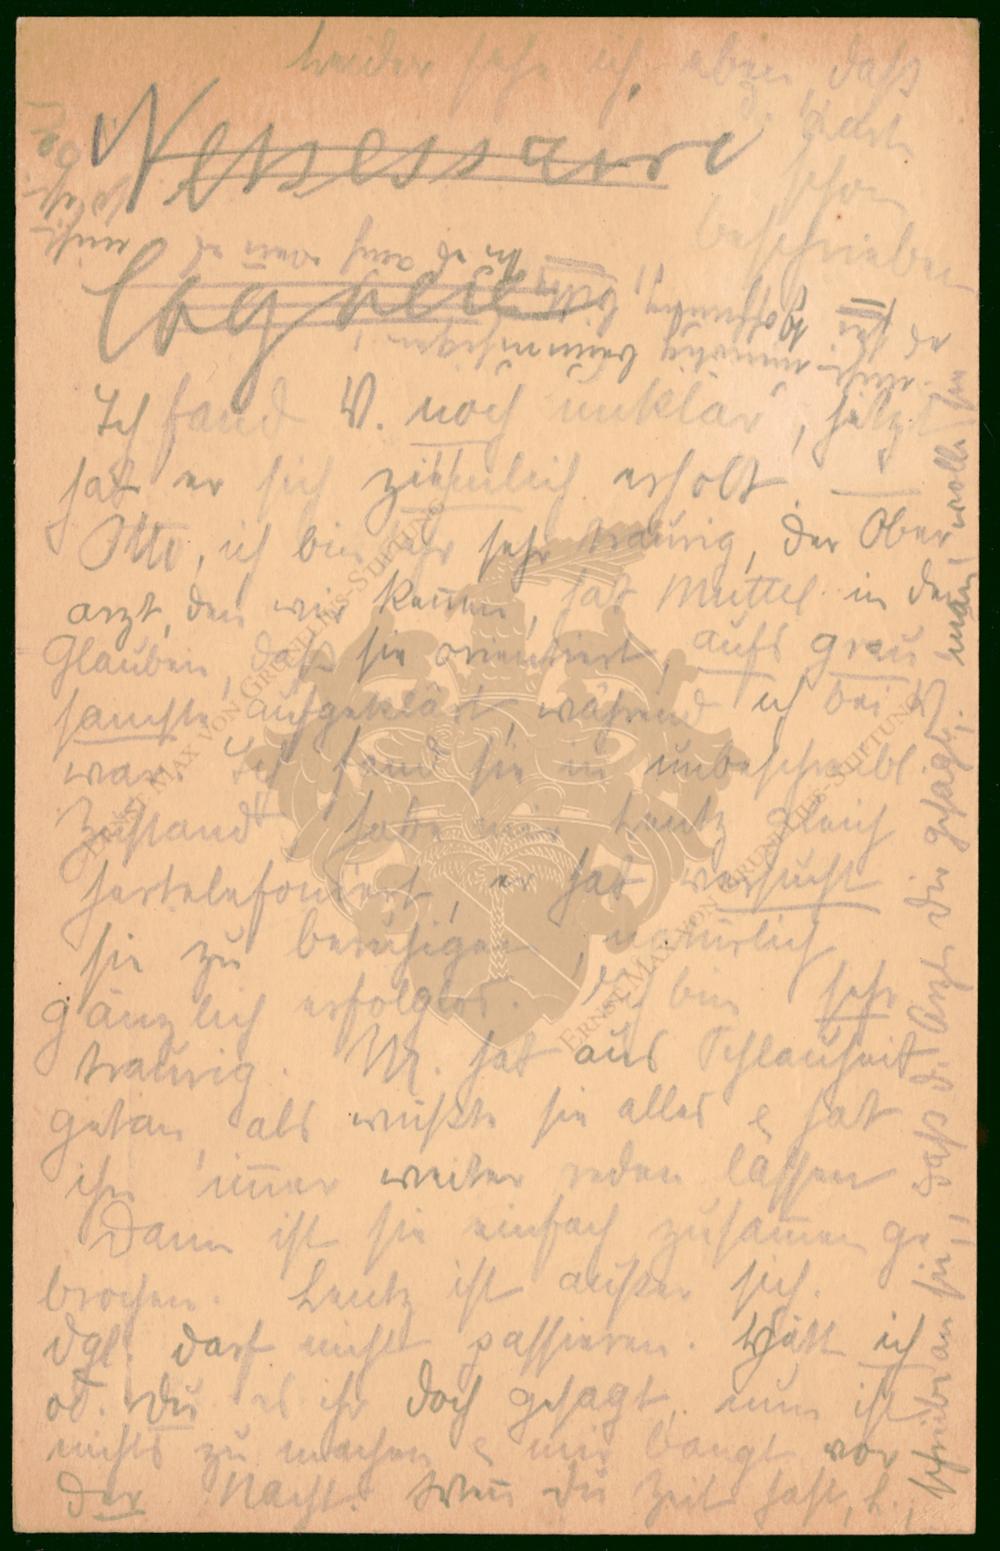 Leider sehe ich eben, daß
d. Karte
schon
beschrieben
Nessessaire
Ich fand V. noch unklar, jetzt
hat er sich ziemlich erholt. —
Otto, ich bin sehr traurig, der Ober
arzt, den wir kennen, hat Muttel. in dem
Glauben, daß sie orientiert, aufs grau
samste aufgeklärt, während ich bei V.
war. Ich fand sie in unbeschreibl.
Zustand, habe mir Lentz gleich
hertelefoniert, er hat versucht
sie zu beruhigen, natürlich
gänzlich erfolglos. Ich bin sehr
traurig. M. hat aus Schlauheit
getan, als wüßte sie alles & hat
ihn immer weiter reden lassen
Dann ist sie einfach zusammen ge
brochen. Lentz ist außer sich.
dgl. darf nicht passieren. Hätt ich
od. Du es ihr doch gesagt, nun ist
nichts zu machen & mir bangt vor
der Nacht. Wenn Du Zeit hast,
schreibe an sie, daß d. Arzt dir gesagt, man wolle sie
nicht unnötig beunruhigen